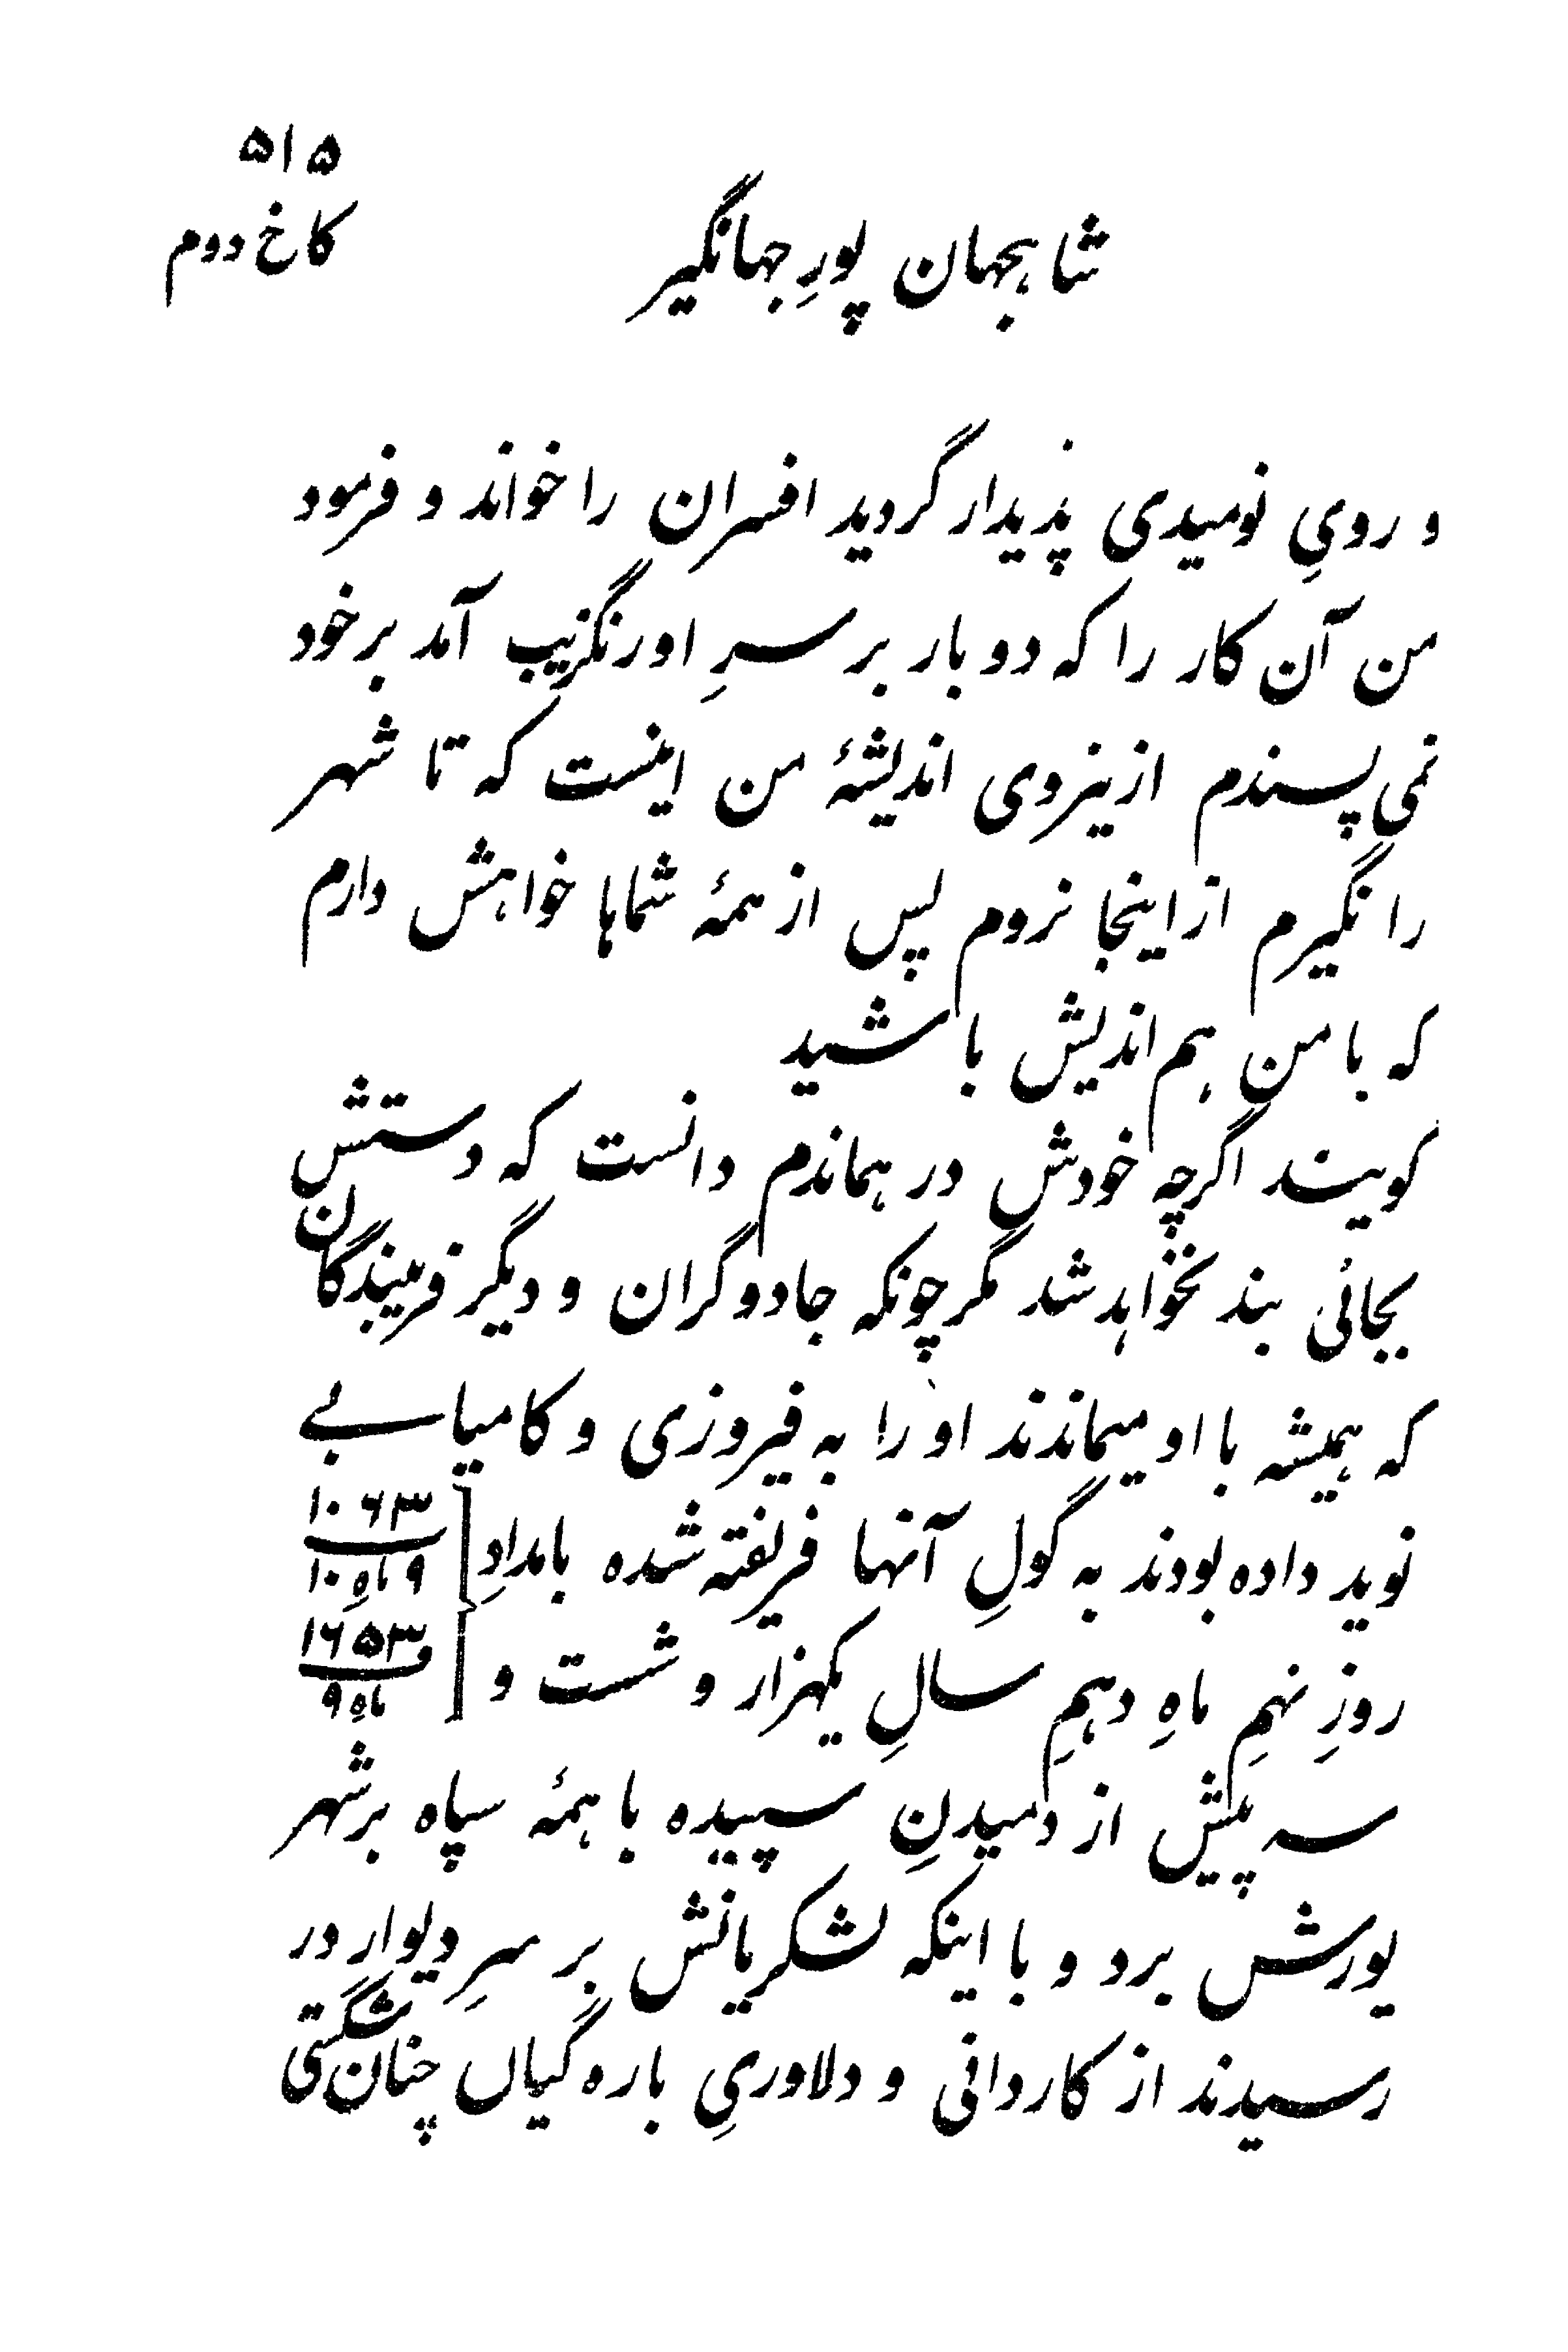 ۵۱۵
شاهجهان پورِ جهانگیر
کاخ دوم
و رویِ نومیدی پذیدار گردید افسران را خواند و فرمود
من آن کار را که دو بار بر سرِ اورنگزیب آمد بر خود
نمی پسندم ازینروی اندیشهٔ من اینست که تا شهر
را نگیرم از اینجا نروم پس از همهٔ شماها خواهش دارم
که با من هم اندیش باشید
گویند اگرچه خودش در هماندم دانست که دستش
بجائی بند نخواهد شد مگر چونکه جادوگران و دیگر فریبندگان
که همیشه با او میماندند او را به فیروزی و کامیابے
نوید داده بودند به گولِ آنها فریفته شده بامدادِ
۱۰۶۳
۹ ماهِ ۱۰
روزِ نهمِ ماهِ دهمِ سالِ یکهزار و شست و
۱۶۵۳
ماه ۹
سه پیش از دمیدنِ سپیده با همهٔ سپاه بر شهر
یورش برد و با اینکه لشکریانش بر سرِ دیوار در
رسیدند از کاردانی و دلاوریِ باره گیاں چنان شگستی